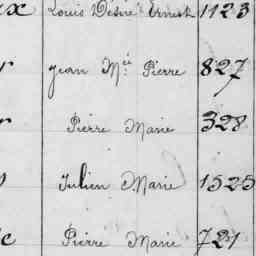 Louis Désiré Ernest 1123
Jean M.ie Pierre 827
Pierre Marie 328
Julien Marie 1525
Pierre Marie 721